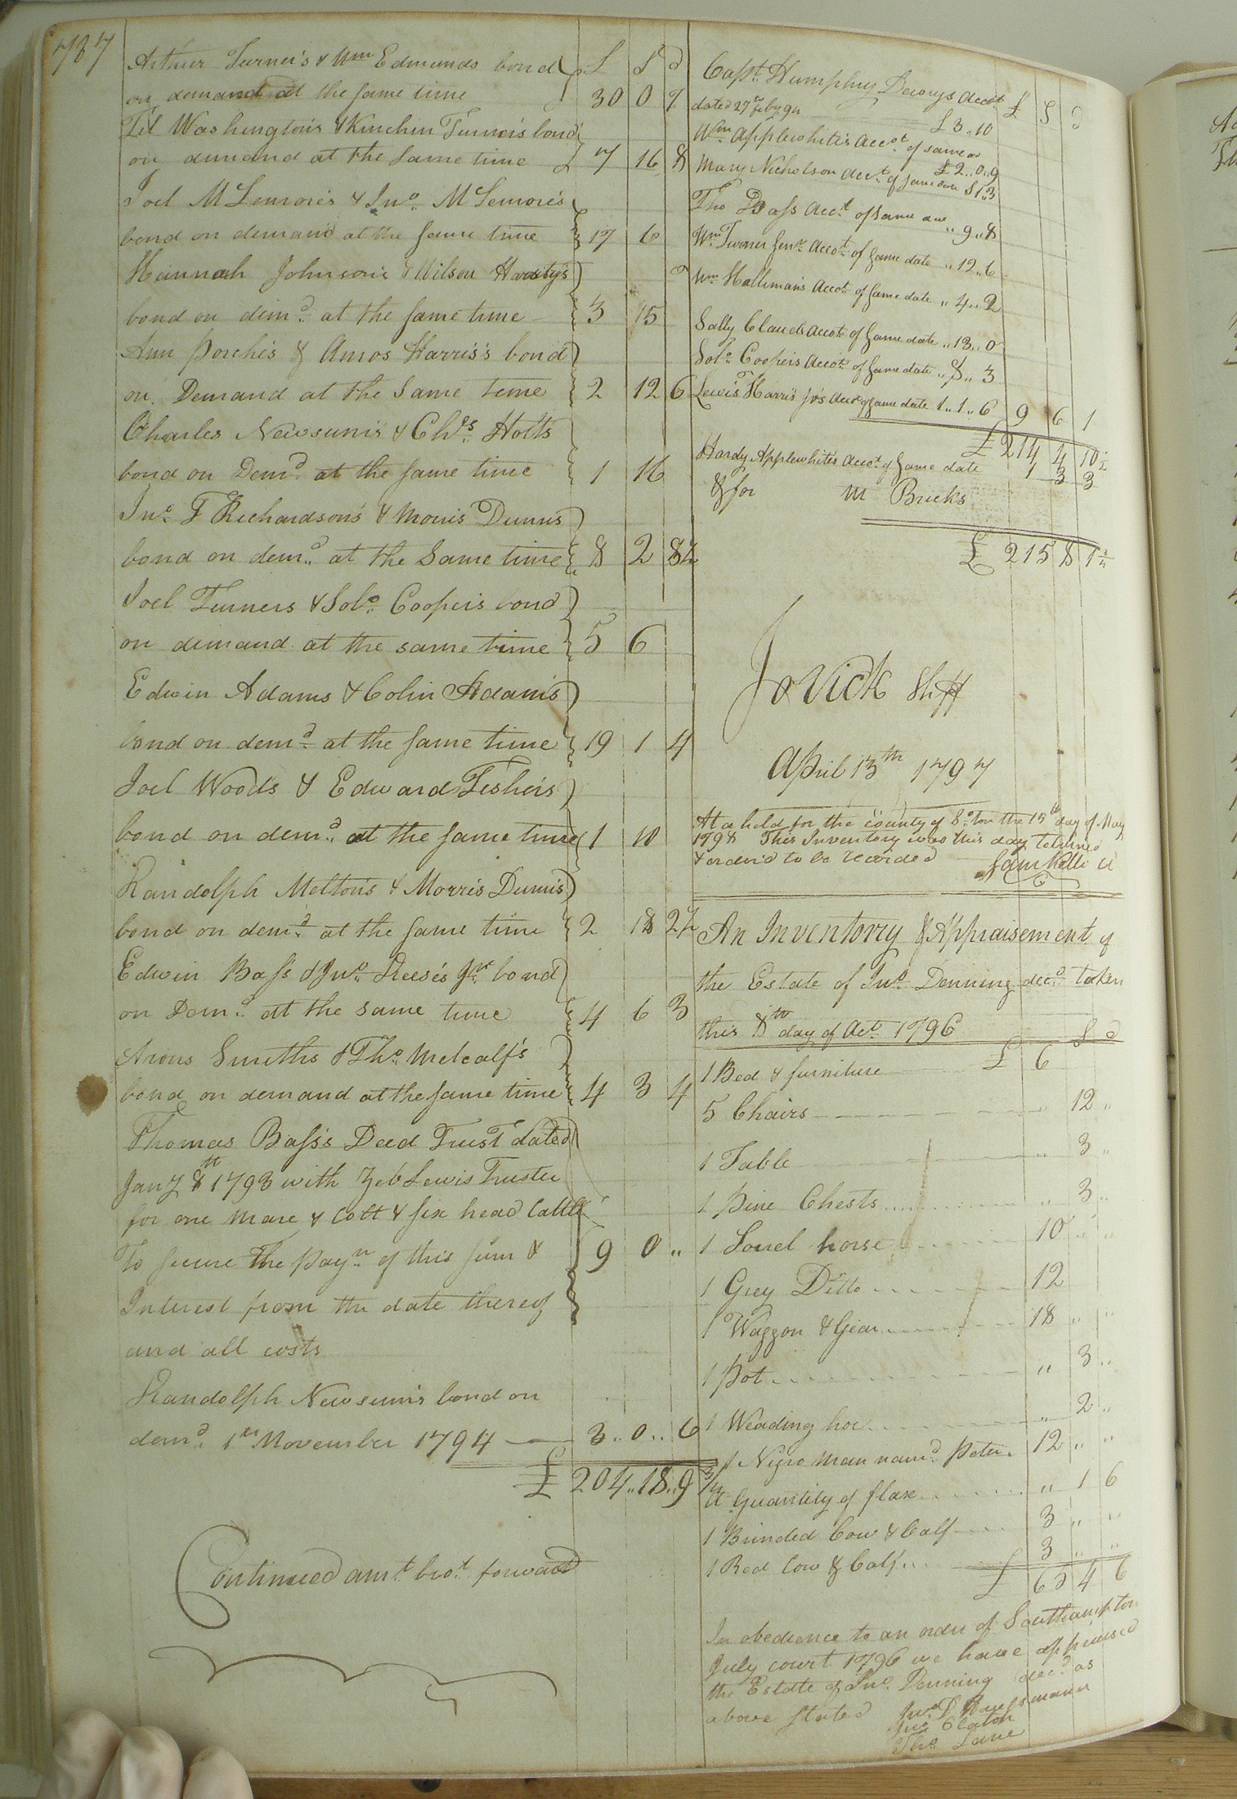 787
Arthur Turner's & Wm Edmunds bond £ S d
on demand at the same time 30 0 7
Washington's & Kinchen Turner's bond
on demand at the same time 7 16 8
Joel McLemore's & Jno. McLemore's
bond on demand at the same time 17 6
Hannah Johnson's & Wilson Hasty's
bond on demd. at the same time 3 15
Ann Porche's & Amos Harris's bond
on Demand at the Same time 2 12 6
Charles Newsum's & Chs. Holts
bond on Demd. at the same time 1 16
Jno. T Richardson's & Morris Dunn's
bond on demd. at the Same time 8 2 8½
Joel Turners & Solo. Cooper's bond
on demand at the same time 5 6
Edwin Adams & Colin Adam's
bond on demd. at the same time 19 1 4
Joel Wood's & Edward Fisher's
bond on demd. at the same time 1 10
Randolph Melton's & Morris Dunn's
bond on demd. at the same time 2 18 2½
Edwin Bass & Jno. Reese's Jnr. bond
on Demd. at the same time 4 6 3
Arons Smiths & Tho. Metcalf's
bond on demand at the same time 4 3 4
Thomas Bass's Deed Trust dated
Jany 8th 1793 with Zeb Lewis Trustee
for one mare & Colt & six head Cattle
To secure the paym of this sum & 9 0 "
Interest from the date thereof
and all costs
Randolph Newsum's bond on
demd. 1st November 1794 3 .. 0 .. 6
£ 204 .. 18 .. 9 ¾
Continued amt. brot. forward
Capt. Humphry Accot £ S d
dated 27th Feby 94 £ 3 .. 10
Wm. Applewhite's Accot of same £ 2 .. 0 .. 9
Mary Nicholson Acct. of same date
Tho Bass Acct. of same " 9 .. 8
Wm. Turner Senr. Accot. of same date " 12 .. 6
Wm. Holliman's Accot. of same date " 4 .. 2
Sally Claud's Accot. of same date " 13 .. 0
Solo. Cooper's Accot. of same date " 8 .. 3
Lewis Harris Accot. of same date 1 .. 1 .. 6 9 6 1
£ 214 4 10½
Hardy Applewhite's Accot. of same date 1 3 3
& for M Bricks
£ 215 8 1½
Jo Vick Shff
April 13th 1797
At a held for the County of So.ton the 15th day of May
1798 This Inventory was this day returned
& order'd to be recorded
Sam Kello Cl
An Inventorry & Appraisement of
the Estate of Jno. Denning decd. taken
this 8th day of Octo. 1796 S d
1 Bed & furniture £ 6
5 Chairs " 12 "
1 Table " 3 "
1 Pine Chests " 3 "
1 Sorrel horse 10 " "
1 Grey Ditto 12
1 Waggon & Gear 18 " "
1 Pot " 3 "
1 Weading hoe " 2 "
1 Negro man namd. Peter 12 " "
A Quantity of flax " 1 6
1 Brinded Cow & Calf 3 " "
1 Red Cow & Calf 3 " "
£ 65 4 6
In obedience to an order of Southampton
July court 1796 we have appraised
the Estate of Jno. Denning decd. as
above stated
Jno. Claton
Tho. Lane